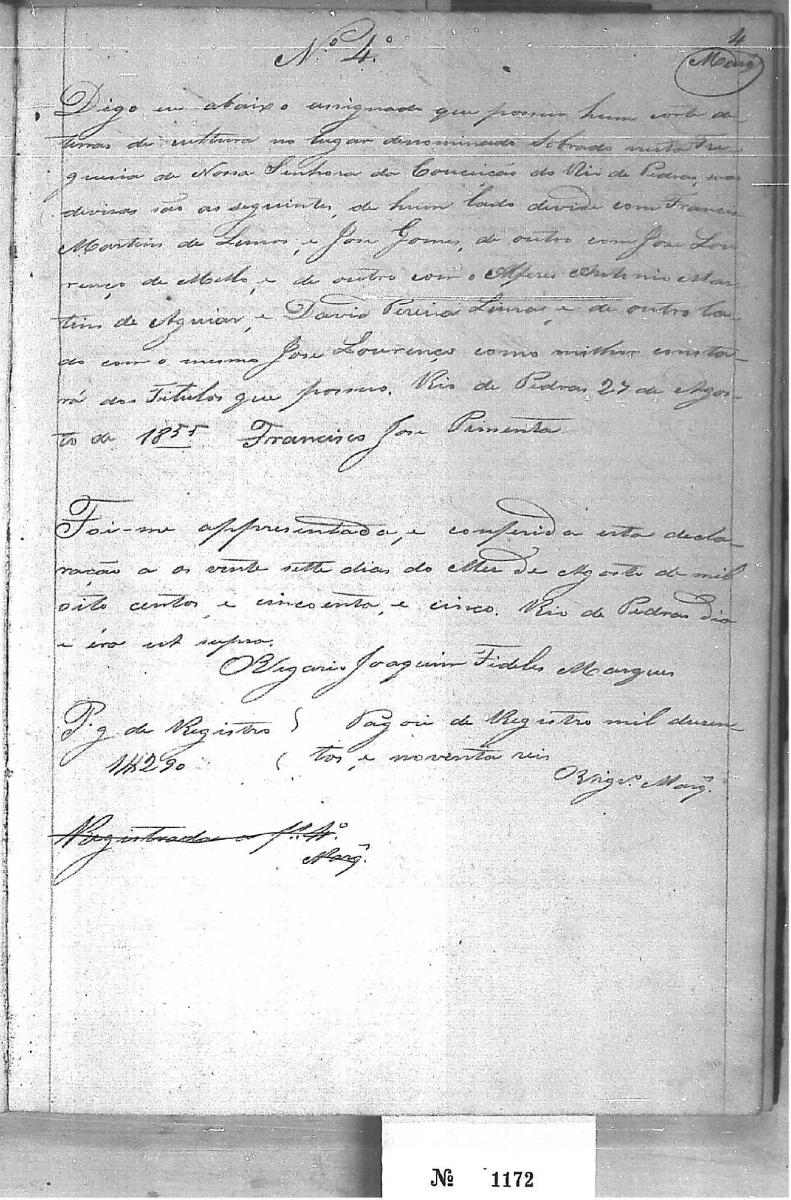 4
Marq.
N.º 4.º
Digo eu abaixo assignado que possuo hum corte de
terras de cultura no lugar denominado Sobrado nesta Fre-
guesia de Nossa Senhora da Conceição do Rio de Pedras, suas
devisas são as seguintes, de hum lado devide com Francisco
Martins de Lemos, e Jose Gomes, de outro com Jose Lou-
renço de Mello, e de outro com o Alferes Antonio Mar-
tins de Aguiar, e David Pereira Lima, e de outro la-
do com o mesmo Jose Lourenço como milhor consta-
rá dos Titulos que possuo. Rio de Pedras 27 de Agos-
to de 1855 Francisco Jose Pimenta
Foi-me appresentada, e conferida esta decla-
ração a os vente sette dias do Mez de Agosto de mil
oito centos, e cincoenta, e cinco. Rio de Pedras dia
e éra ut supra.
Vigario Joaquim Fideles Marques
P. g de Registro } Pagou de Registro mil duzen-
1$290 { tos, e noventa reis
Vigr.º Marq.
Registrada a f. 4.º
Marq.
Nº 1172